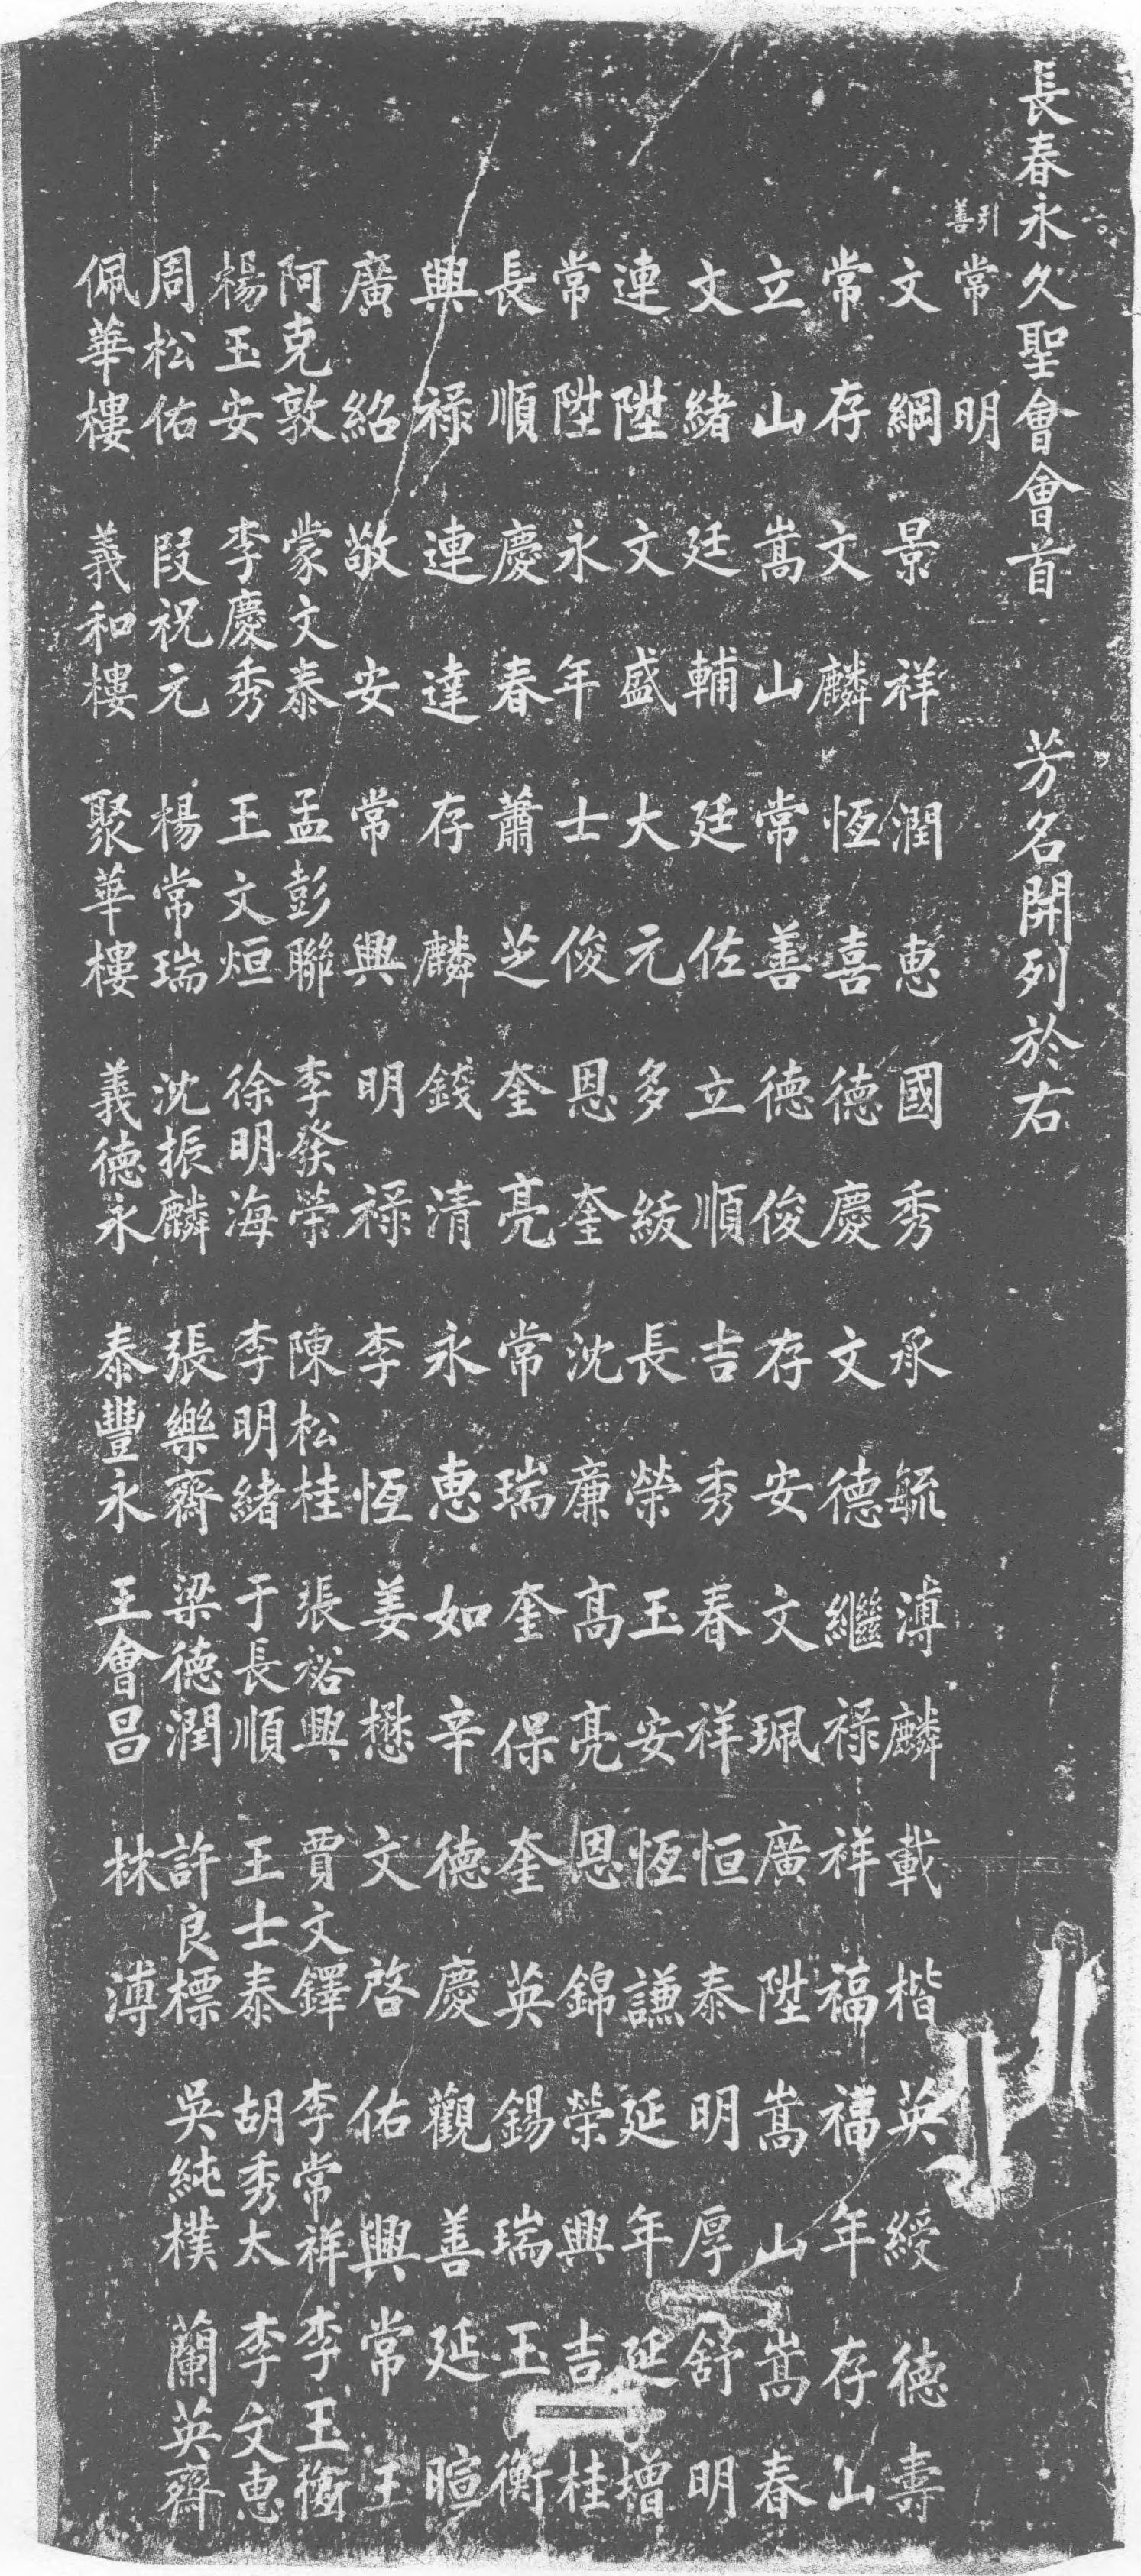 長春永久聖會會首 芳名開列於右
引善 常明
文綱 景祥 潤惠 國秀 承毓 溥麟 載楷 英綬 德壽
常存 文麟 恆喜 德慶 文德 繼祿 祥福 福年 存山
立山 嵩山 常善 德俊 存安 文珮 廣陞 嵩山 嵩春
文緒 廷輔 廷佐 立順 吉秀 春祥 恒泰 明厚 舒明
連陞 文盛 大元 多綏 長榮 玉安 恆謙 延年 延增
常陞 永年 士俊 恩奎 沈廉 高亮 恩錦 榮興 吉桂
長順 慶春 蕭芝 奎亮 常瑞 奎保 奎英 錫瑞 玉衡
興祿 連達 存麟 錢清 永惠 如辛 德慶 觀善 延暄
廣紹 敬安 常興 明祿 李恆 姜懋 文啓 佑興 常玉
阿克敦 蒙文泰 孟彭聯 李發榮 陳松桂 張裕興 賈文鐸 李常祥 李玉衡
楊玉安 李慶秀 王文烜 徐明海 李明緒 于長順 王士泰 胡秀太 李文惠
周松佑 段祝元 楊常瑞 沈振麟 張樂齋 梁德潤 許良標 吳純樸 蘭英齋
佩華樓 義和樓 聚華樓 義德永 泰豐永 王會呂 林溥